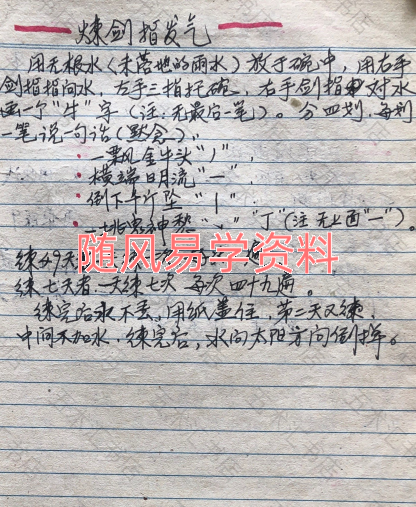 炼剑指发气
用无根水(未落地的雨水)放于碗中,用右手
剑指指向水,左手三指托碗,右手剑指对水
画一个"牛"字(注:无最后一笔)。分四划,每划
一笔说一句话(默念)。
金牛头"丿",
日月流"一",
倒下千斤坠"丨",
"丅"(注 无上面"一")。
随风易学资料
练49天
练七天者,一天练七次 每次四十九遍。
练完后水不丢,用纸盖住,第二天又练,
中间不加水,练完后,水向太阳方向倒掉。